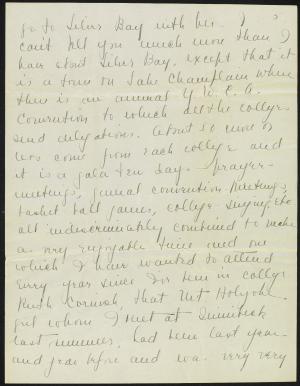 go to Silver Bay with her. I
can't tell you much more than I
have about Silver Bay, except that it
is a town on Lake Champlain where
there is an annual Y. W. C. A.
Convention to which all the colleges
send delegations. About 50 more or
less come from each college and
it is a gala ten days. Prayer-
meetings, general convention meetings,
basket ball games, college singing, etc
all indiscriminately combined to make
a very enjoyable time and one
which I have wanted to attend
every year since I've been in college
Ruth Cornish, that Mt Holyoke
girl whom I met at
last summer, had been last year
and year before and was very very